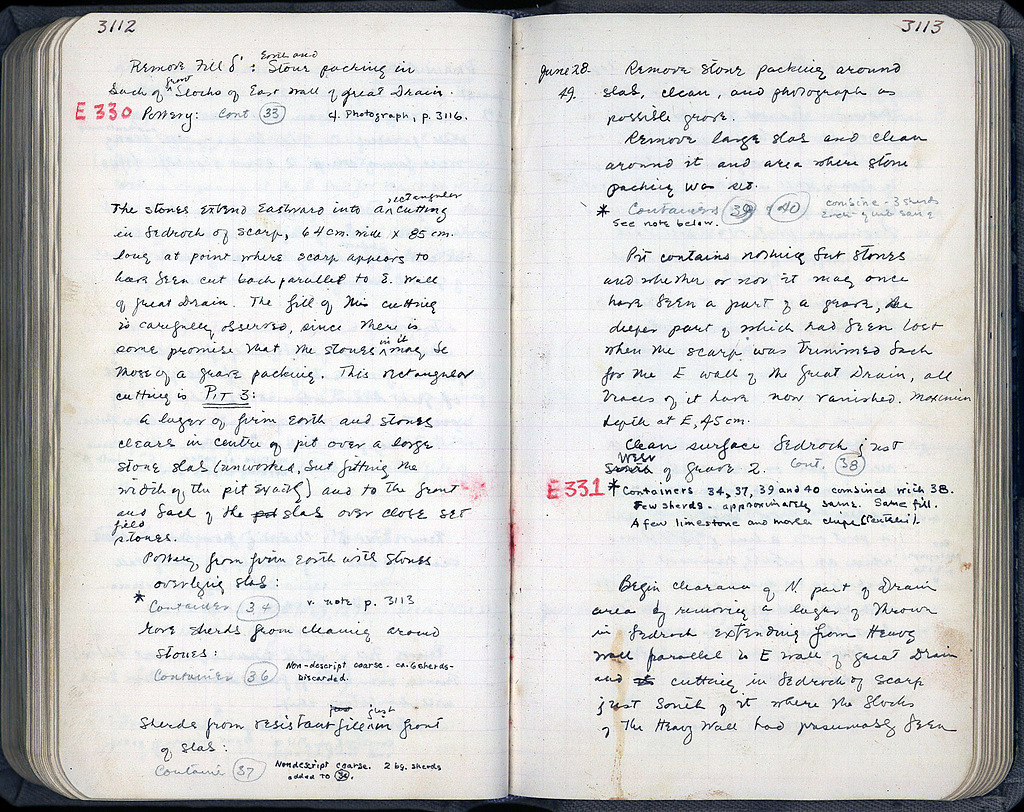 3112
Remove Fill δ' : Earth and Stone packing in
back of front blocks of East Wall of Great Drain.
E 330 Pottery: Cont. 33 cf. Photograph, p. 3116.
The stones extend Eastward into a rectangular cutting
in bedrock of scarp, 64 cm. wide x 85 cm.
long at point where scarp appears to
have been cut back parallel to E. Wall
of Great Drain. The fill of this cutting
is carefully observed, since there is
some promise that the stones in it may be
those of a grave packing. This rectangular
cutting is PIT 3:
A layer of firm earth and stones
clears in centre of pit over a large
stone slab (unworked, but fitting the
width of the pit exactly) and to the front
and back of the slab over close set
field stones.
Pottery from firm earth with stones
overlying slab:
* Container 34 v. note p. 3113
More sherds from cleaning around
stones:
Container 36 Non-descript coarse. ca. 6 sherds-
discarded.
Sherds from resistant fill just in front
of slab:
Container 37 Nondescript coarse. 2 bg. sherds
added to 34.
3113
June 28. Remove stone packing around
49. slab, clean, and photograph as
possible grave.
Remove large slab and clean
around it and area where stone
packing was set.
* Containers 39 + 40 combine - 3 sherds
See note below.
Pit contains nothing but stones
and whether or not it may once
have been a part of a grave, the
deeper part of which had been lost
when the scarp was trimmed back
for the E wall of the Great Drain, all
traces of it have now vanished. Maximum
depth at E, 45 cm.
Clean surface bedrock just
West of Grave 2. Cont. 38
E331 * Containers 34, 37, 39 and 40 combined with 38.
Few sherds - approximately same. Same fill.
A few limestone and marble chips (Earlier).
Begin clearance of N. part of Drain
area by removing a layer of thrown
in bedrock extending from Heavy
Wall parallel to E wall of Great Drain
and cutting in bedrock of scarp
just South of it where the blocks
of The Heavy Wall had presumably been